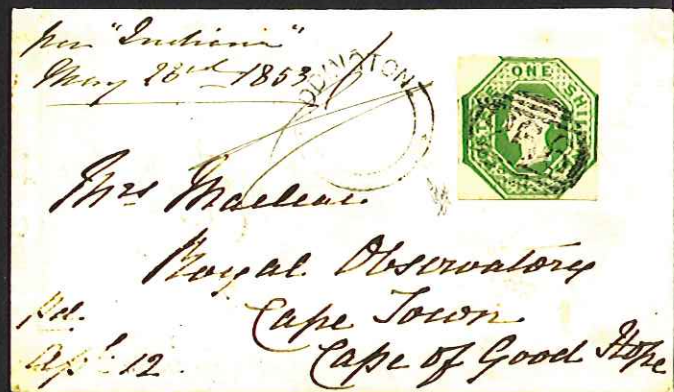 per "Indiana"
May 23rd 1853
ODDINGTON
POSTAGE ONE SHILLING
Mrs Maclear
Royal Observatory
Cape Town
Cape of Good Hope
pd.
Apl 12.